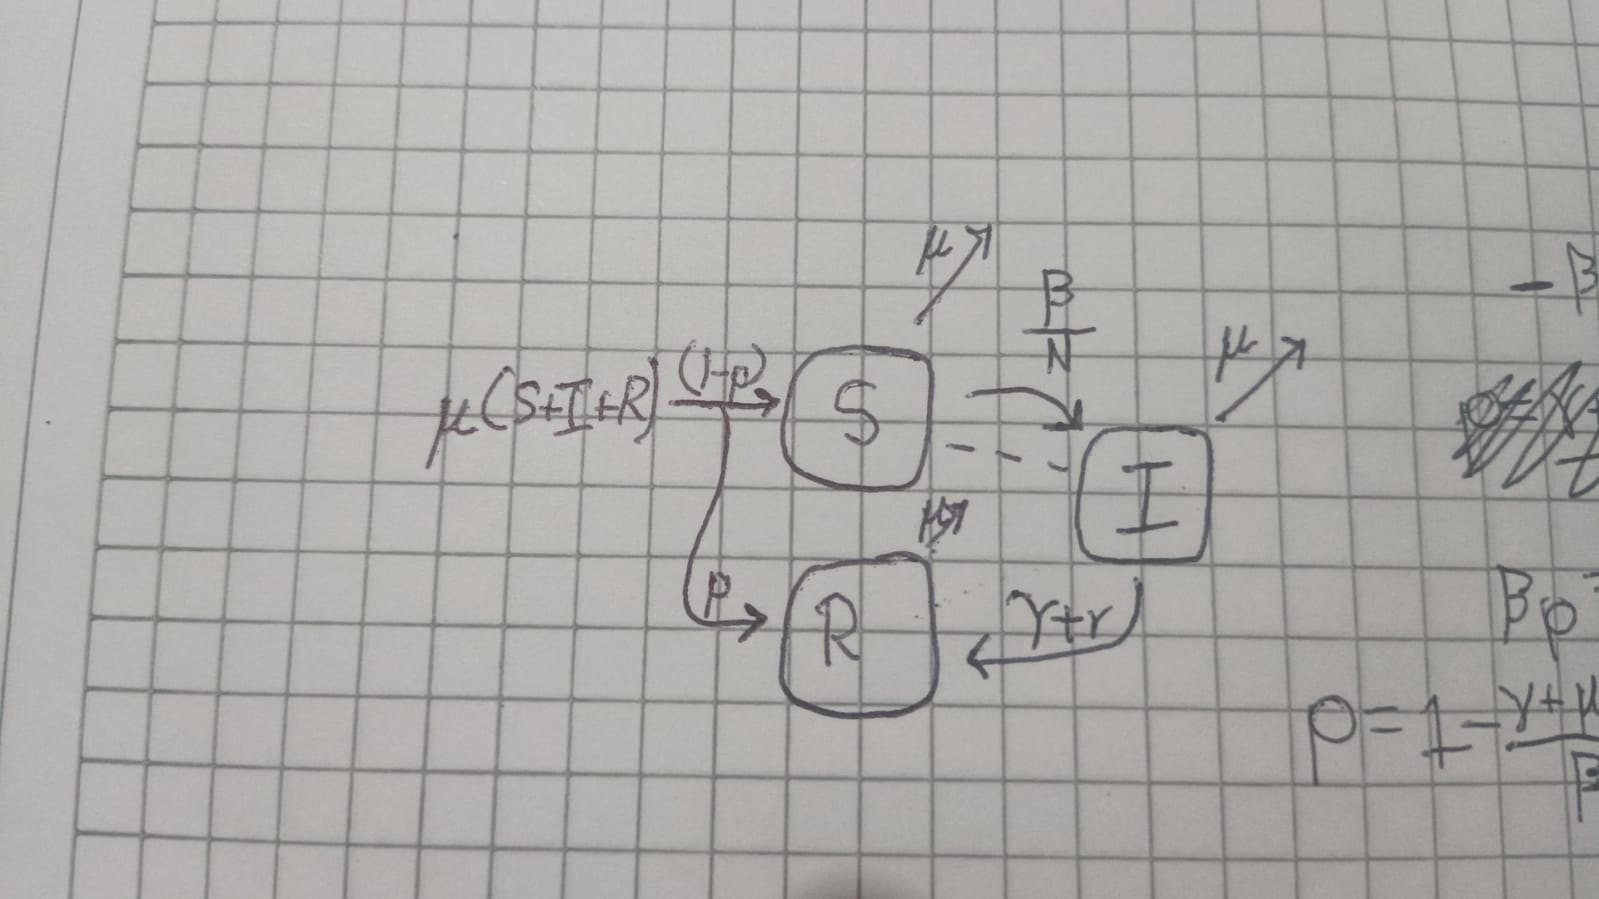 μ
β
N
μ
- β
μ(S+I+R) (1-p) S
I
μ
p
R
γ+r
βp
p = 1 - γ+μ
β